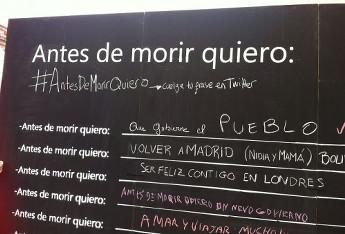 Antes de morir quiero:
#AntesDeMorirQuiero cuelga tu frase en Twitter
-Antes de morir quiero: Que gobierne el PUEBLO
-Antes de morir quiero: VOLVER A MADRID (NIDIA Y MAMÁ)
-Antes de morir quiero: SER FELIZ CONTIGO EN LONDRES
-Antes de morir quiero: ANTES DE MORIR QUIERO UN
-Antes de morir quiero: AMAR Y VIAJAR MUCHO
-Antes de morir quiero: